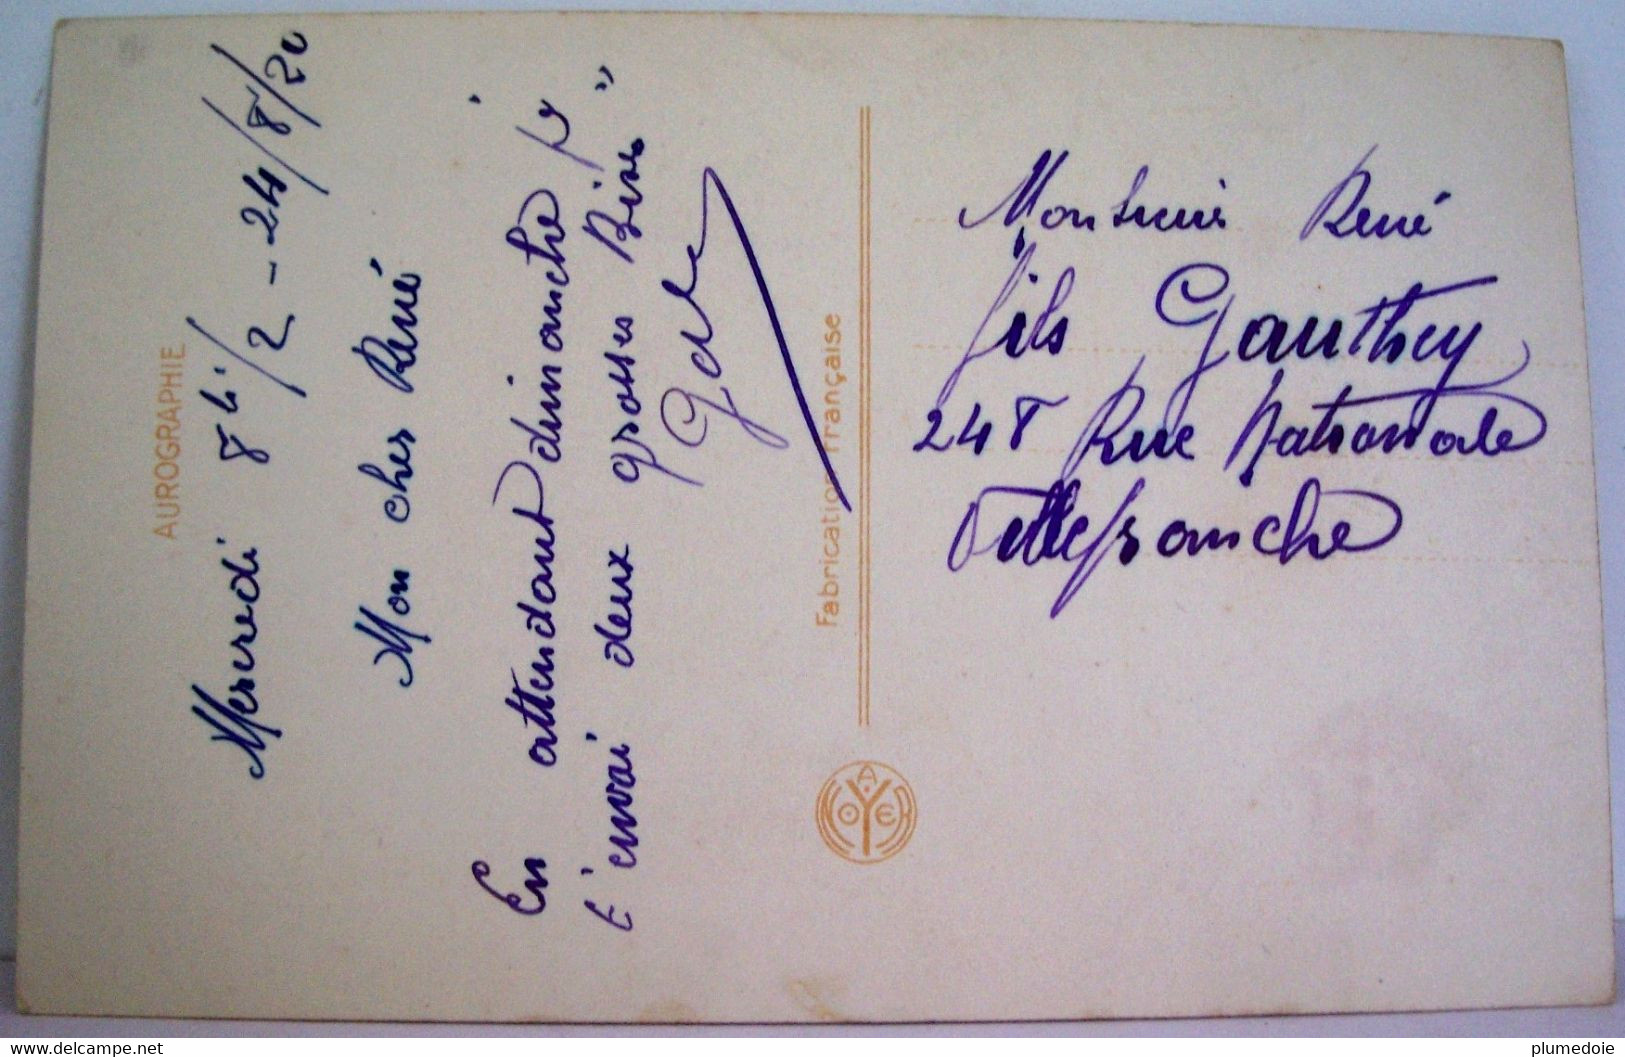 AUROGRAPHIE
Mercredi 8h 1/2 - 24/8/20
Mon cher René
En attendant dimanche je
t'envai deux grosses Bises
Fabrication Française
Monsieur René
fils Gauthey
248 Rue Nationale
Villefranche
plumedoie